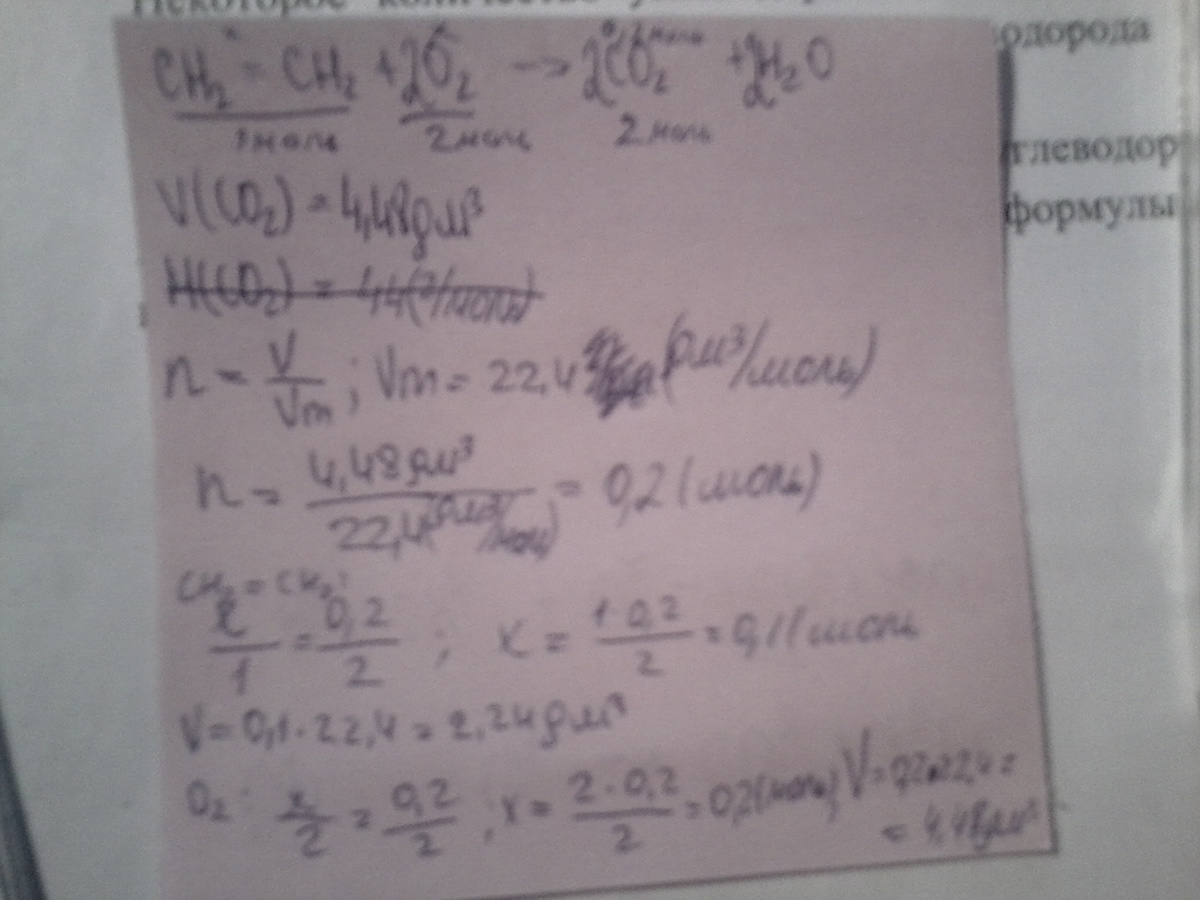 Некоторое количество
одорода
глеводор
формулы
CH₂ = CH₂ + 2O₂ → 2CO₂ + 2H₂O
0,2 моль
1 моль 2 моль 2 моль
V(CO₂) = 4,48 дм³
M(CO₂) = 44(г/моль)
n = V/Vm ; Vm = 22,4 (дм³/моль)
n = 4,48 дм³ / 22,4(дм³/моль) = 0,2 (моль)
CH₂ = CH₂:
x/1 = 0,2/2 ; x = 1·0,2/2 = 0,1 (моль
V = 0,1·22,4 = 2,24 дм³
O₂: x/2 = 0,2/2 ; x = 2·0,2/2 = 0,2(моль) V = 0,2·22,4 =
= 4,48 дм³